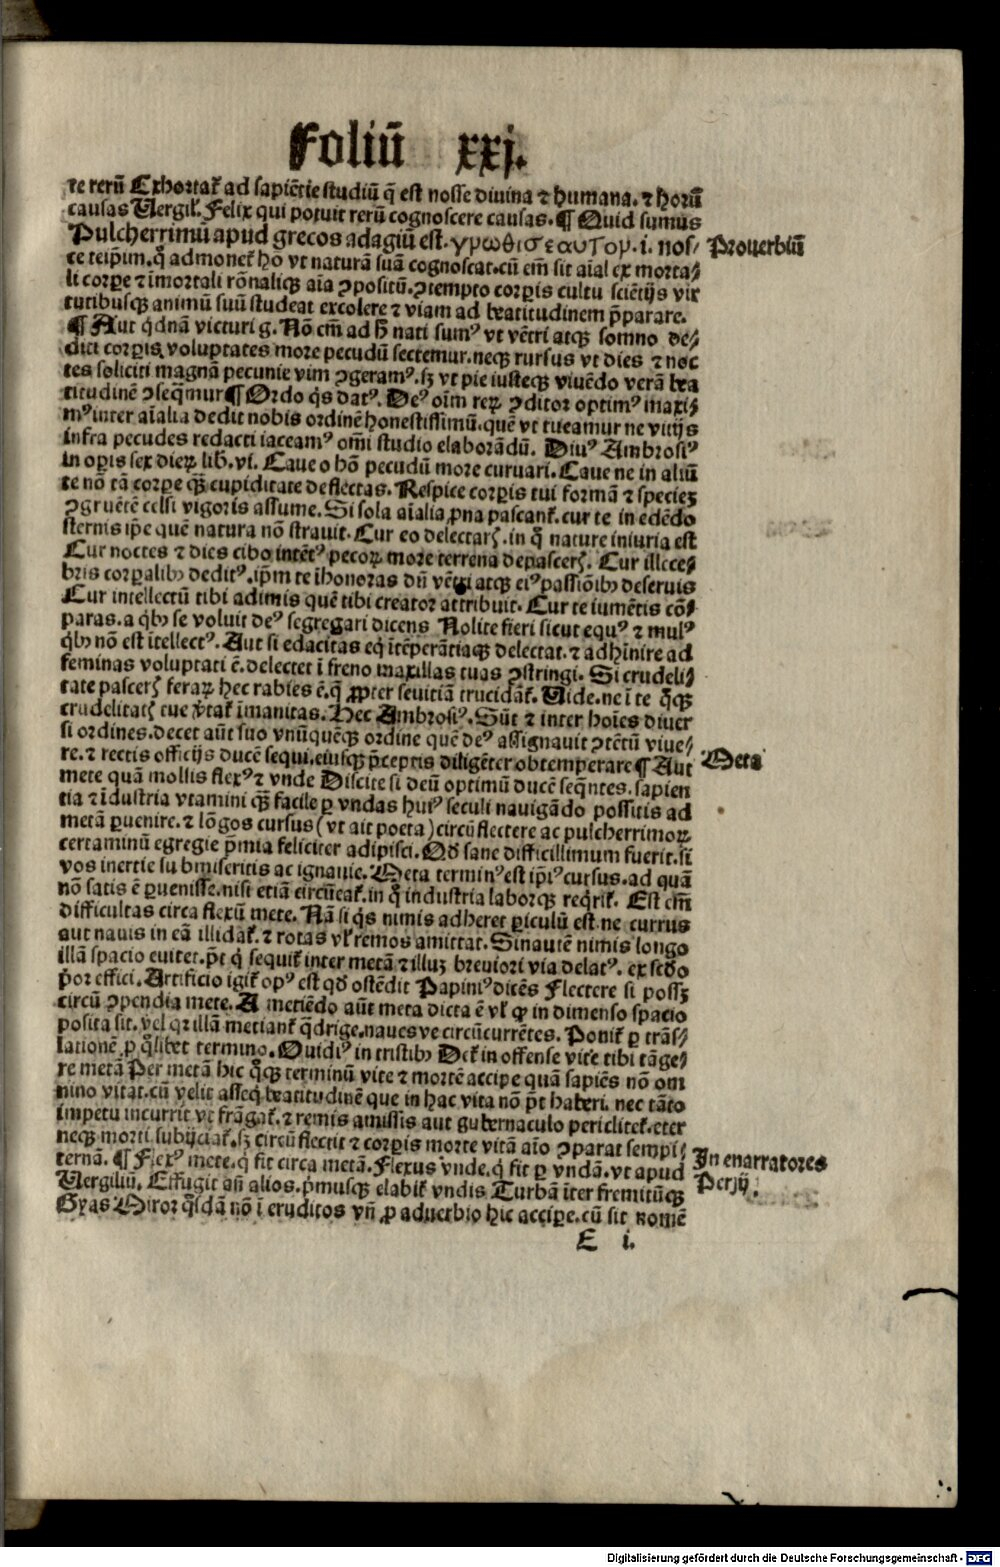 Foliū xxj.
te rerū Exhortat̃ ad sapiētie studiū q̄ est nosse diuina ⁊ humana. ⁊ horū
causas Uergil̃. Felix qui potuit rerū cognoscere causas. ¶ Quid sumus
Pulcherrimū apud grecos adagiū est. γρωθισεαυτορ. i. nos/
Prouerbiū
te teip̄m. q̊ admonet̃ hō vt naturā suā cognoscat. cū em̄ sit aīal ex morta/
li corꝑe ⁊ īmortali rōnaliqꝫ aīa ↄpositū. ↄtempto corꝑis cultu sciētijs vir
tutibusqꝫ animū suū studeat excolere ⁊ viam ad beatitudinem p̄parare.
¶ Aut qdnā victuri g. Nō em̄ ad h̄ nati sumꝰ vt vētri atqꝫ somno de/
diti corꝑis voluptates more pecudū sectemur. neqꝫ rursus vt dies ⁊ noc
tes soliciti magnā pecunie vim ↄgeramꝰ. sꝫ vt pie iusteqꝫ viuēdo verā bea
titudinē ↄseq̄mur ¶ Ordo q̇s datꝰ. Deꝰ oīm reꝝ ↄditor optimꝰ maxi/
mꝰ inter aīalia dedit nobis ordinē honestissimū. quē vt tueamur ne vitijs
infra pecudes redacti iaceamꝰ om̄i studio elaborādū. Diuꝰ Ambrosiꝰ
in oꝑis sex dieꝝ lib̄. vi. Caue o hō pecudū more curuari. Caue ne in aluū
te nō tā corꝑe qꝫ̄ cupiditate deflectas. Respice corꝑis tui formā ⁊ speciez
ↄgruētē celsi vigoris assume. Si sola aīalia ꝓna pascant̃. cur te in edēdo
sternis ip̄e quē natura nō strauit. Cur eo delectarꝭ. in q̊ nature iniuria est
Cur noctes ⁊ dies cibo intētꝰ pecoꝝ more terrena depascerꝭ. Cur illece/
bris corꝑalibꝫ deditꝰ. ip̄m te īhonoras dū vētri atqꝫ eiꝰ passiōibꝫ deseruis
Cur intellectū tibi adimis quē tibi creator attribuit. Cur te iumētis cō/
paras. a q̇bꝫ se voluit deꝰ segregari dicens Nolite fieri sicut equꝰ ⁊ mulꝰ
q̇bꝫ nō est ītellectꝰ. Aut si edacitas eq̇ ītēperātiaqꝫ delectat. ⁊ adhīnire ad
feminas voluptati ē. delectet ī freno maxillas tuas ↄstringi. Si crudeli/
tate pascerꝭ feraꝝ hec rabies ē. q̄ ꝓpter seuitiā trucidāt̃. Uide. ne ī te q̊qꝫ
crudelitatꝭ tue v̄tat̃ īmanitas. Hec Ambrosiꝰ. Sūt ⁊ inter hoīes diuer
si ordines. decet aūt suo vnūquēqꝫ ordine quē deꝰ assignauit ↄtētū viue/
re. ⁊ rectis officijs ducē sequi. eiusqꝫ p̄ceptis diligēter obtemperare ¶ Aut
Meta
mete quā mollis flexꝰ ⁊ vnde Discite si deū optimū ducē seq̄ntes. sapien
tia ⁊ īdustria vtamini qꝫ̄ facile ꝑ vndas huiꝰ seculi nauigādo possitis ad
metā ꝑuenire. ⁊ lōgos cursus (vt ait poeta) circūflectere ac pulcherrimoꝝ
certaminū egregie p̄mia feliciter adipisci. Qd̄ sane difficillimum fuerit. si
vos inertie submiseritis ac ignauie. Meta terminꝰ est ip̄iꝰ cursus. ad quā
nō satis ē ꝑuenisse. nisi etiā circūeat̃. in q̊ industria laborqꝫ req̇rit̃. Est em̄
difficultas circa flexū mete. Nā si q̇s nimis adheret ꝑiculū est. ne currus
aut nauis in eā illidat̃. ⁊ rotas vl̃ remos amittat. Sin autē nimis longo
illā spacio euitet. p̄t q̇ sequit̃ inter metā ⁊ illuꝫ breuiori via delatꝰ. ex secdo
p̄or effici. Artificio igit̃ opꝰ est qd̄ ostēdit Papiniꝰ dicēs Flectere si possꝫ
circū ↄpendia mete. A metiēdo aūt meta dicta ē vl̃ ꝙ in dimenso spacio
posita sit. vel qꝛ illā metiant̃ q̄drige. naues ve circūcurrētes. Ponit̃ ꝑ trās/
lationē ꝓ q̊libet termino. Ouidiꝰ in tristibꝫ Dct̃ in offense vite tibi tāge/
re metā Per metā hic q̊qꝫ terminū vite ⁊ mortē accipe quā sapiēs nō om
nino vitat. cū velit asseq̇ beatitudinē que in hac vita nō p̄t haberi. nec tāto
impetu incurrit vt frāgat̃. ⁊ remis amissis aut gubernaculo periclitet̃. eter
neqꝫ morti subijciat̃. sꝫ circūflectit ⁊ corꝑis morte vitā aīo ↄparat sempi/
ternā. ¶ Flexꝰ mete. q̇ fit circa metā. Flexus vnde. q̇ fit ꝑ vndā. vt apud
In enarratores
Persij.
Uergiliū. Effugit aīī alios. p̄musqꝫ elabit̃ vndis Turbā īter fremitūqꝫ
Gyas Miror q̇sdā nō ī eruditos vn̄ ꝓ aduerbio hic accipe. cū sit nomē
E i.
Digitalisierung gefördert durch die Deutsche Forschungsgemeinschaft - DFG